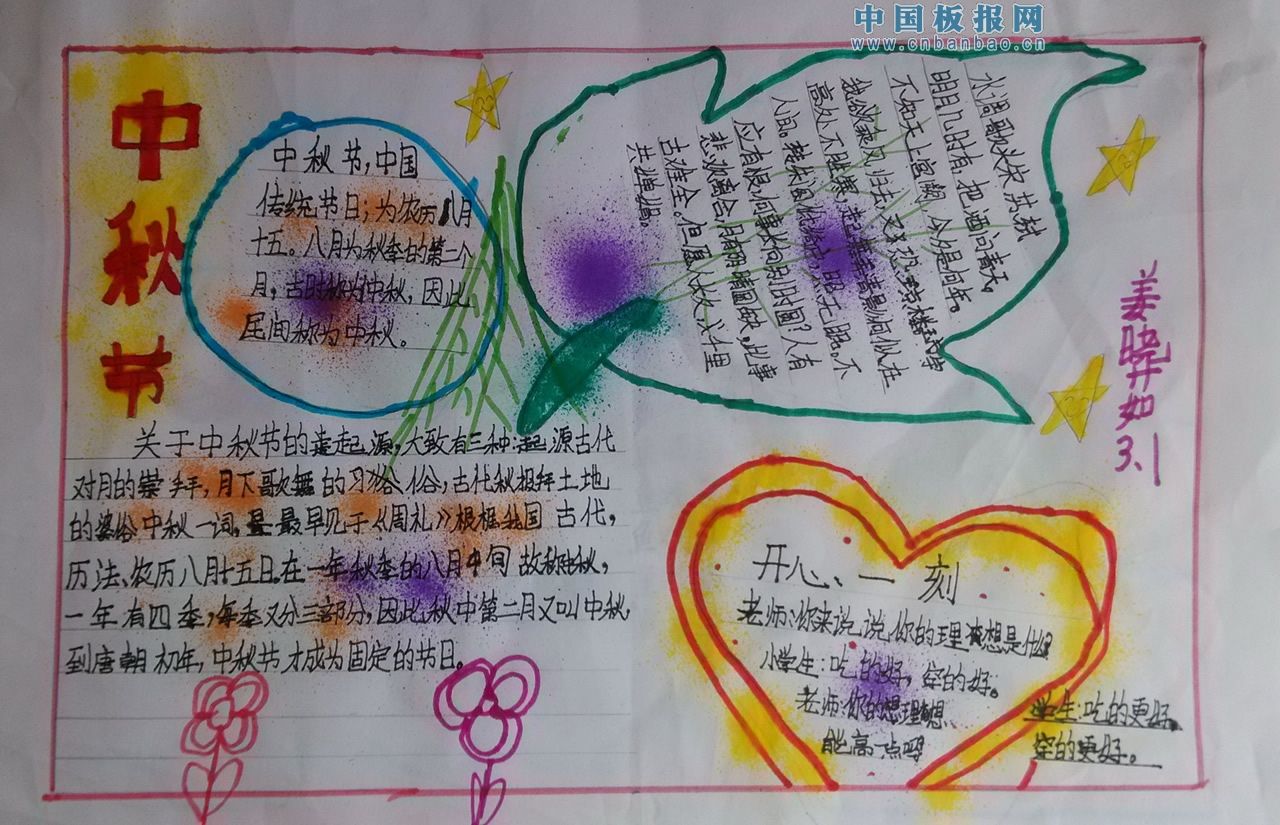 中国板报网
www.cnbanbao.cn
中秋节
中秋节,中国
传统节日,为农历八月
十五。八月为秋季的第二个
月,古时称为仲秋,因此
民间称为中秋。
水调歌头 宋 苏轼
明月几时有,把酒问青天。
不知天上宫阙,今夕是何年。
我欲乘风归去,又不
高处不胜寒,起舞弄清影,何似在
人间。转朱阁,低绮户,照无眠。不
应有恨,何事长向别时圆?人有
悲欢离合,月有阴晴圆缺,此事
古难全。但愿人长久,千里
共婵娟。
姜晓如
3.1
关于中秋节的起源,大致有三种:起源古代
对月的崇拜,月下歌舞的习俗,古代秋报拜土地
的 中秋一词,最早见于《周礼》根据我国古代,
历法、农历八月十五日.在一年秋季的八月中间 故称中秋,
一年有四季,每季又分三部分,因此,秋中第二月又叫中秋,
到唐朝初年,中秋节才成为固定的节日。
开心一刻
老师:你来说说,你的理想是什么
小学生:吃的好,穿的好。
老师:你的理想
能高一点吗
学生:吃的更好,
穿的更好。